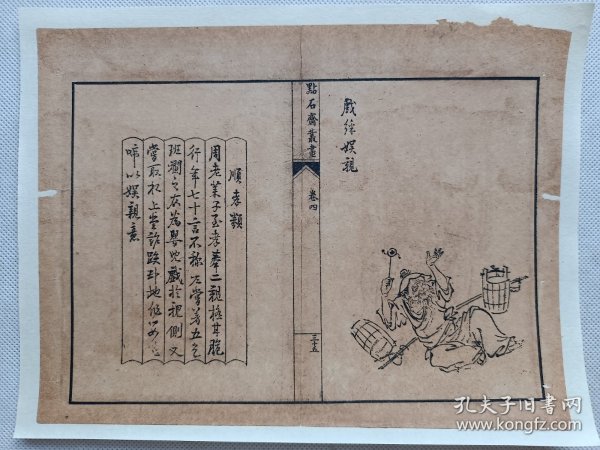 戲綵娛親
點石齋叢畫
卷四
三十五
順孝類
周老萊子至孝奉二親極其脆
行年七十言不稱老常著五色
斑斕之衣為嬰兒戲於親側又
嘗取水上堂詐跌卧地作嬰兒
啼以娛親意
孔夫子旧书网
www.kongfz.com